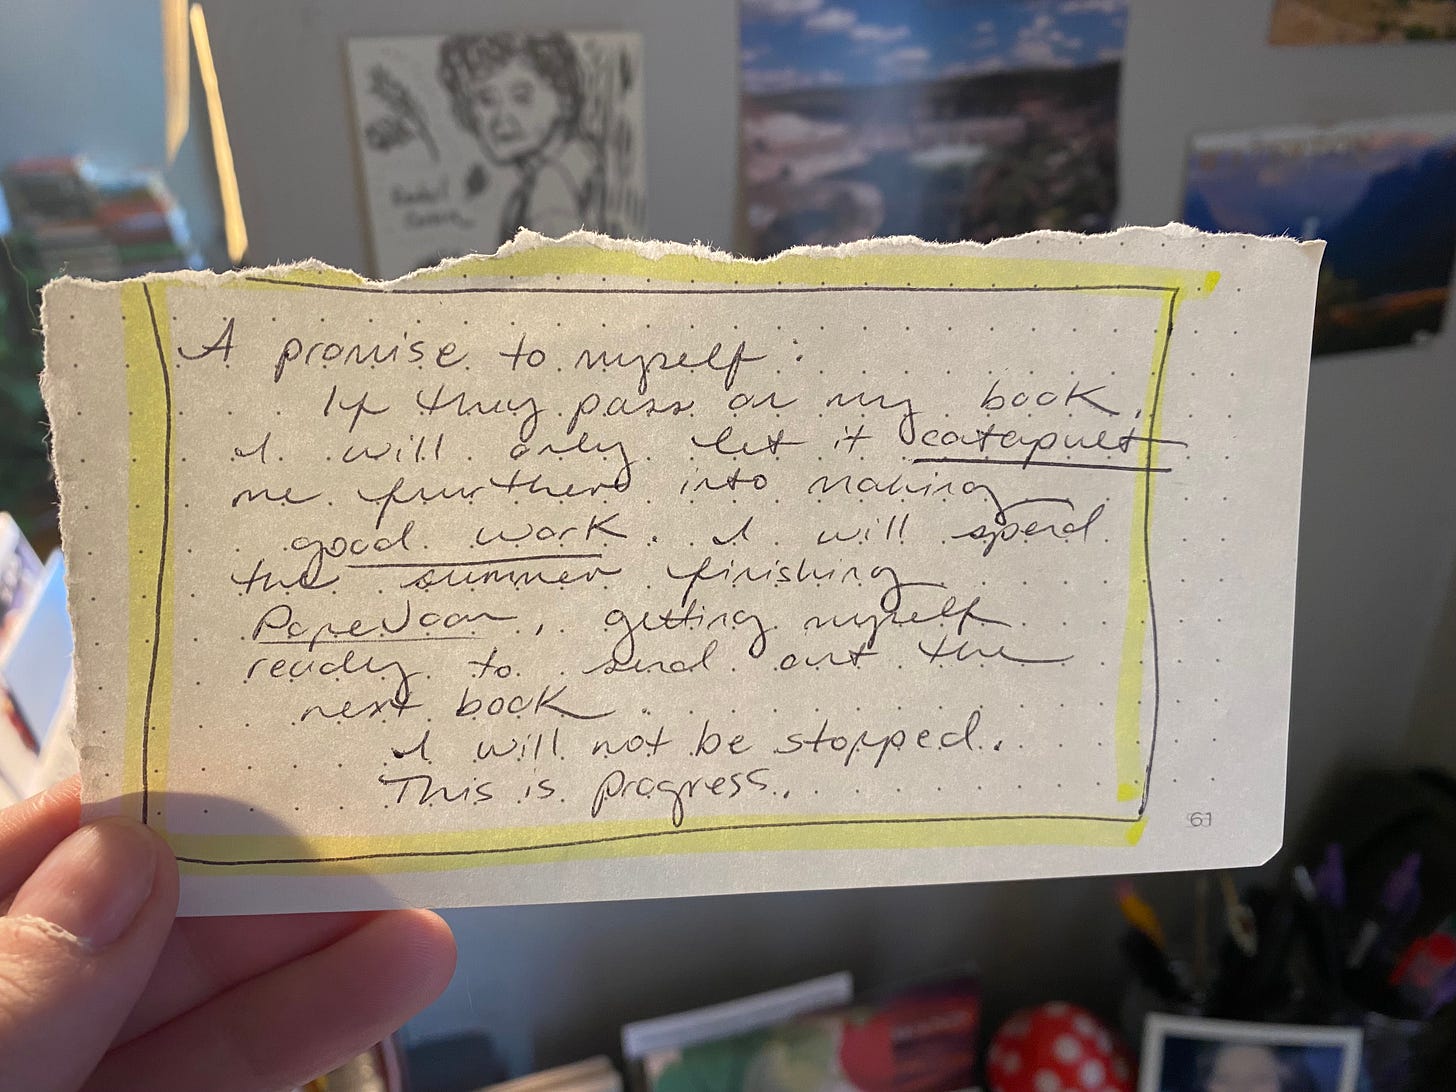 Rachel
Carson
A promise to myself:
If they pass on my book,
I will only let it catapult
me further into making
good work. I will spend
the summer finishing
Pape Joan, getting myself
ready to send out the
next book.
I will not be stopped.
This is progress.
61